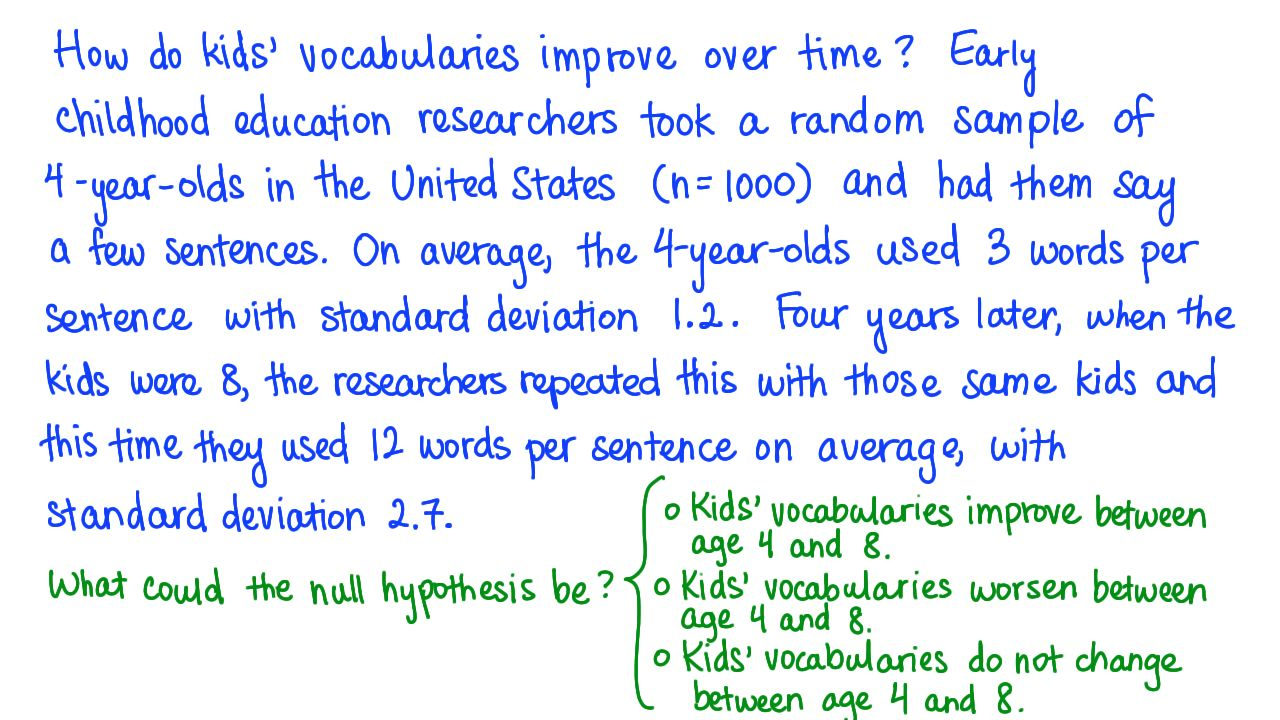 How do kids' vocabularies improve over time? Early
childhood education researchers took a random sample of
4-year-olds in the United States (n=1000) and had them say
a few sentences. On average, the 4-year-olds used 3 words per
sentence with standard deviation 1.2. Four years later, when the
kids were 8, the researchers repeated this with those same kids and
this time they used 12 words per sentence on average, with
standard deviation 2.7.
What could the null hypothesis be?
o Kids' vocabularies improve between
age 4 and 8.
o Kids' vocabularies worsen between
age 4 and 8.
o Kids' vocabularies do not change
between age 4 and 8.